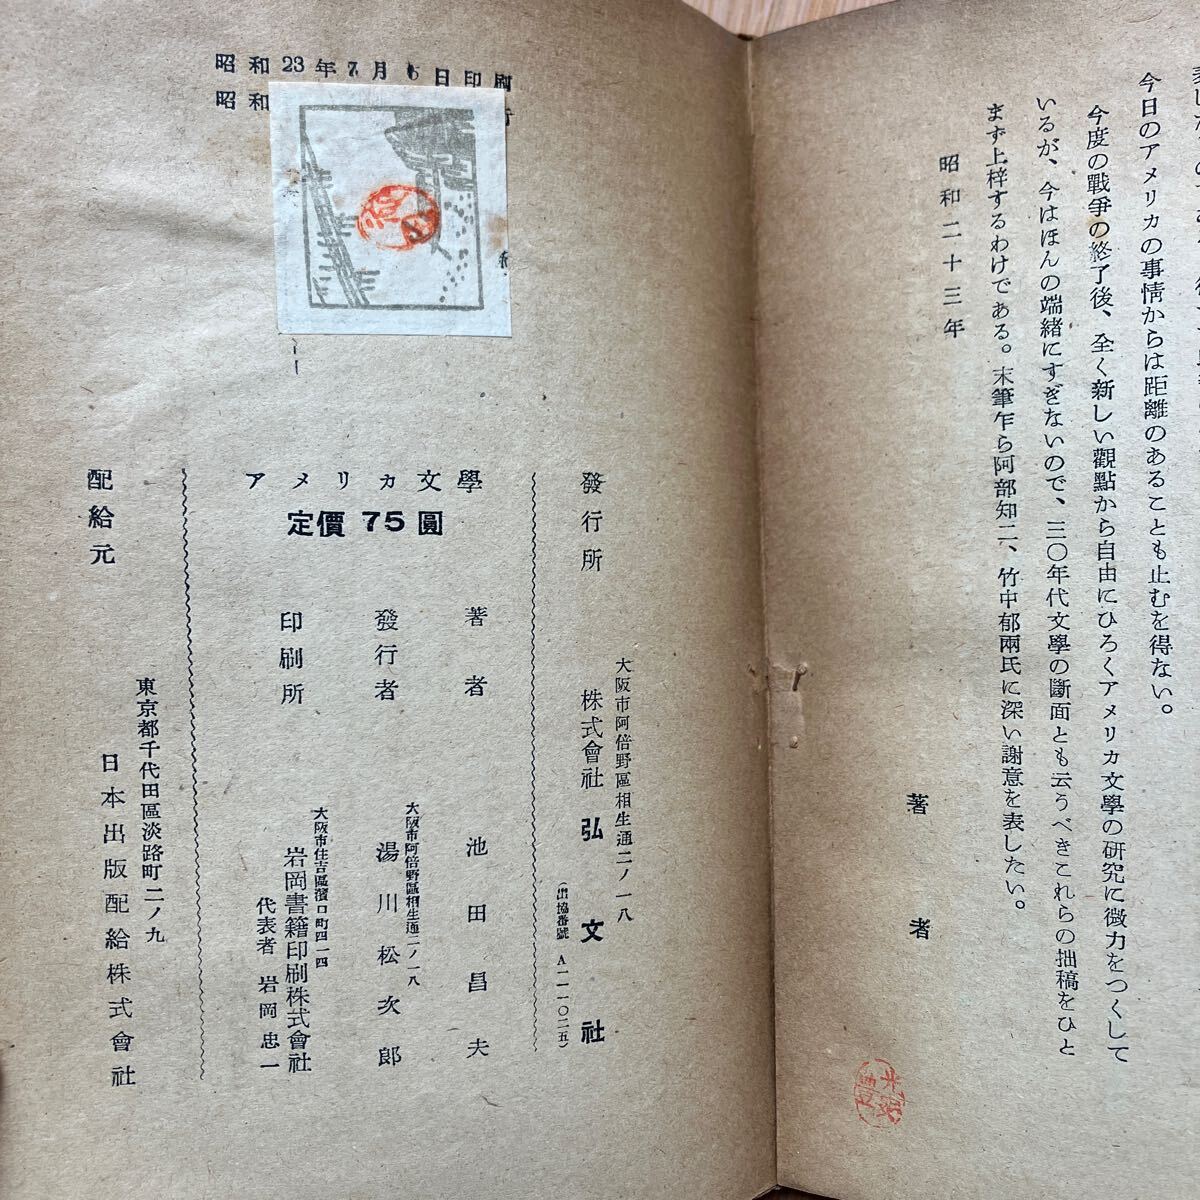 今日のアメリカの事情からは距離のあることも止むを得ない。
今度の戰爭の終了後、全く新しい觀點から自由にひろくアメリカ文學の研究に微力をつくして
いるが、今はほんの端緒にすぎないので、三〇年代文學の斷面とも云うべきこれらの拙稿をひと
まず上梓するわけである。末筆乍ら阿部知二、竹中郁兩氏に深い謝意を表したい。
昭和二十三年
著者
昭和23年7月6日印刷
昭和
發行所
大阪市阿倍野區相生通二ノ一八
株式會社 弘文社
(出協番號 A一一〇二五)
アメリカ文學
定價 75 圓
著者 池田昌夫
發行者
大阪市阿倍野區相生通二ノ一八
湯川松次郎
印刷所
大阪市住吉區濱口町四一四
岩岡書籍印刷株式會社
代表者 岩岡忠一
配給元
東京都千代田區淡路町二ノ九
日本出版配給株式會社